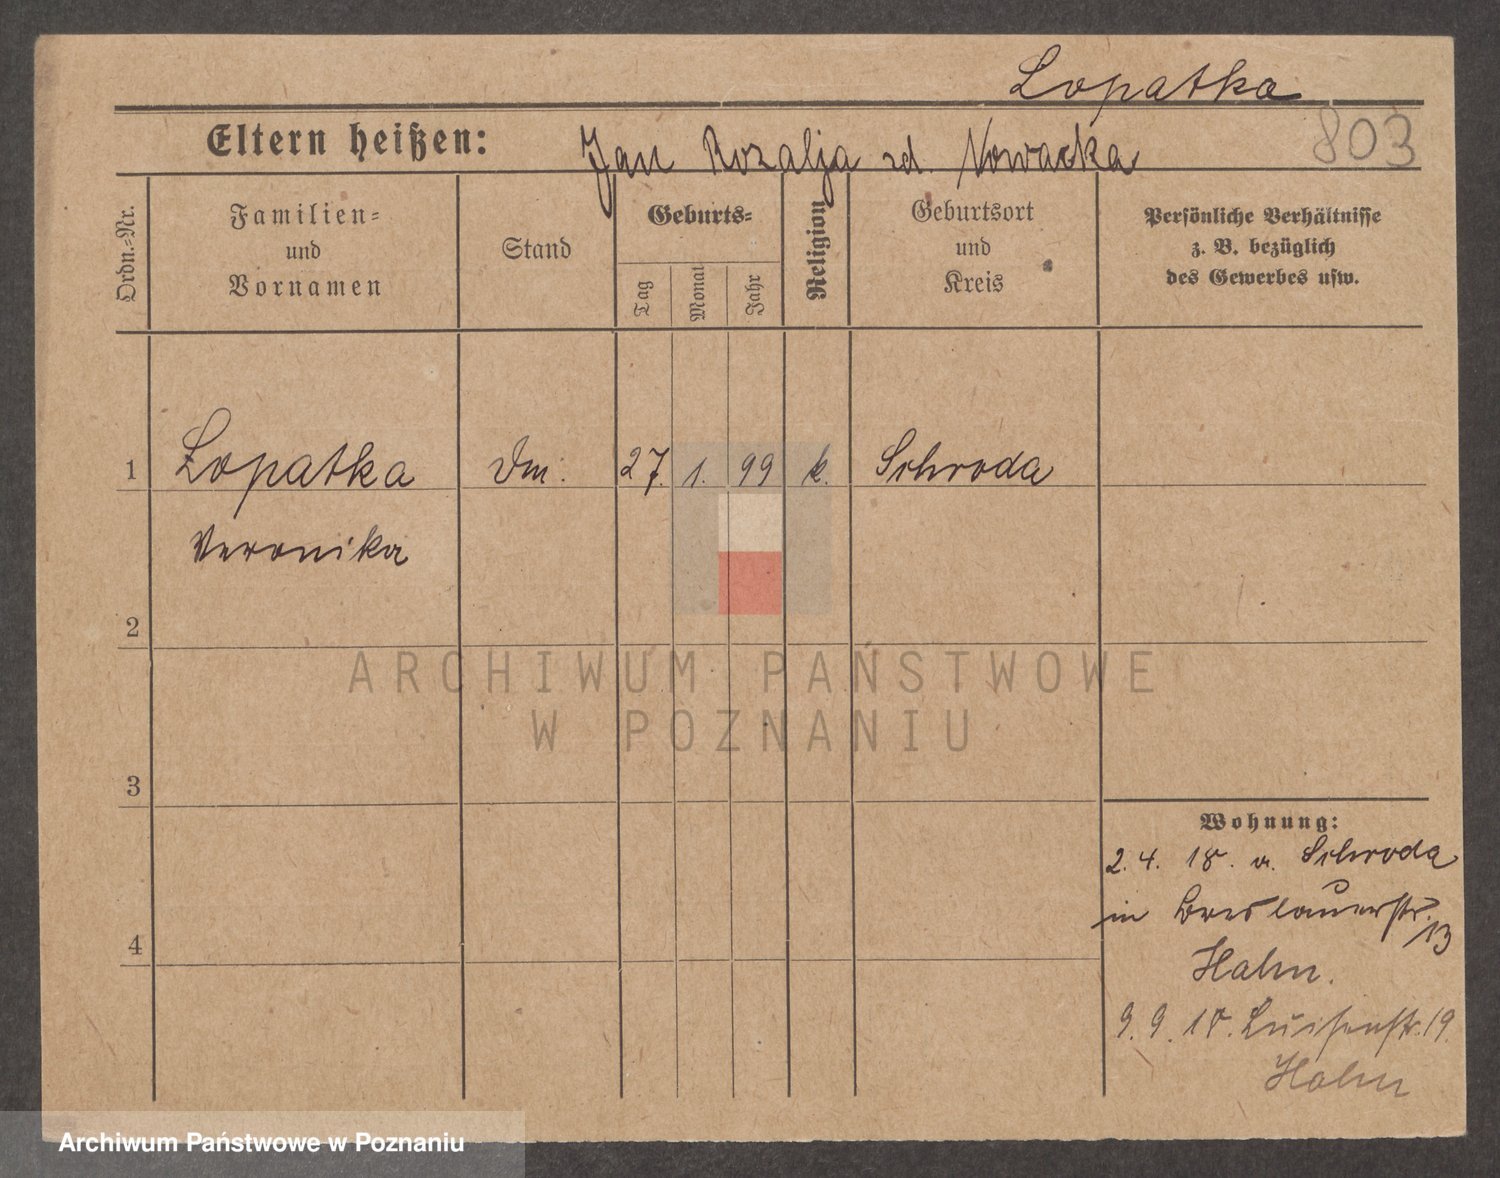 Lopatka
Eltern heißen: Jan Rozalja zd. Nowacka
803
Ordn.-Nr.
Familien-
und
Vornamen
Stand
Geburts-
Tag
Monat
Jahr
Religion
Geburtsort
und
Kreis
Persönliche Verhältnisse
z. B. bezüglich
des Gewerbes usw.
1 Lopatka 27. 1. 99 k. Schroda
Veronika
2
ARCHIWUM PAŃSTWOWE
W POZNANIU
3
Wohnung:
2. 4. 18. a. Schroda
in Breslauerstr.
13
4
Hahn.
9. 9. 18. Luisenstr. 19.
Hahn
Archiwum Państwowe w Poznaniu